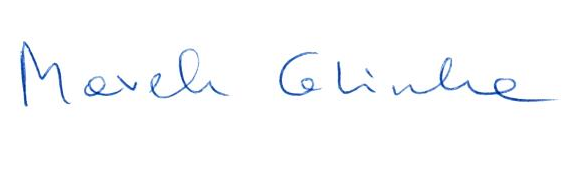 Marek Glinka